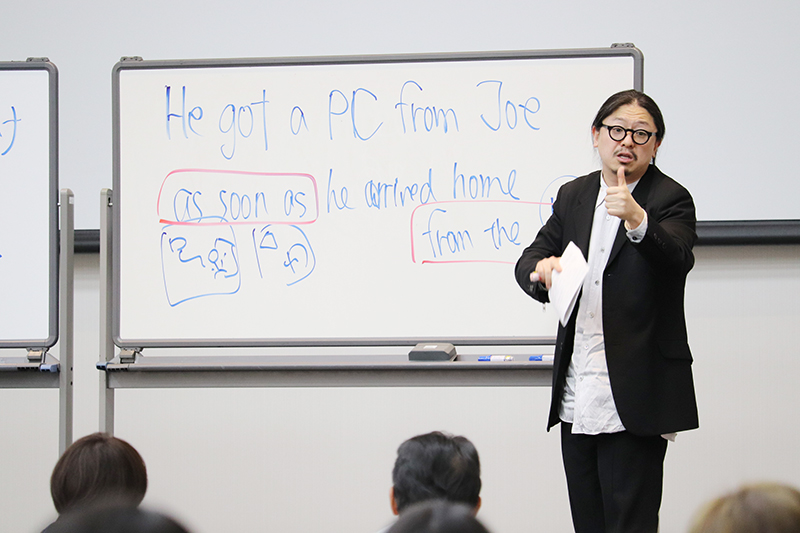 He got a PC from Joe
as soon as he arrived home
from the